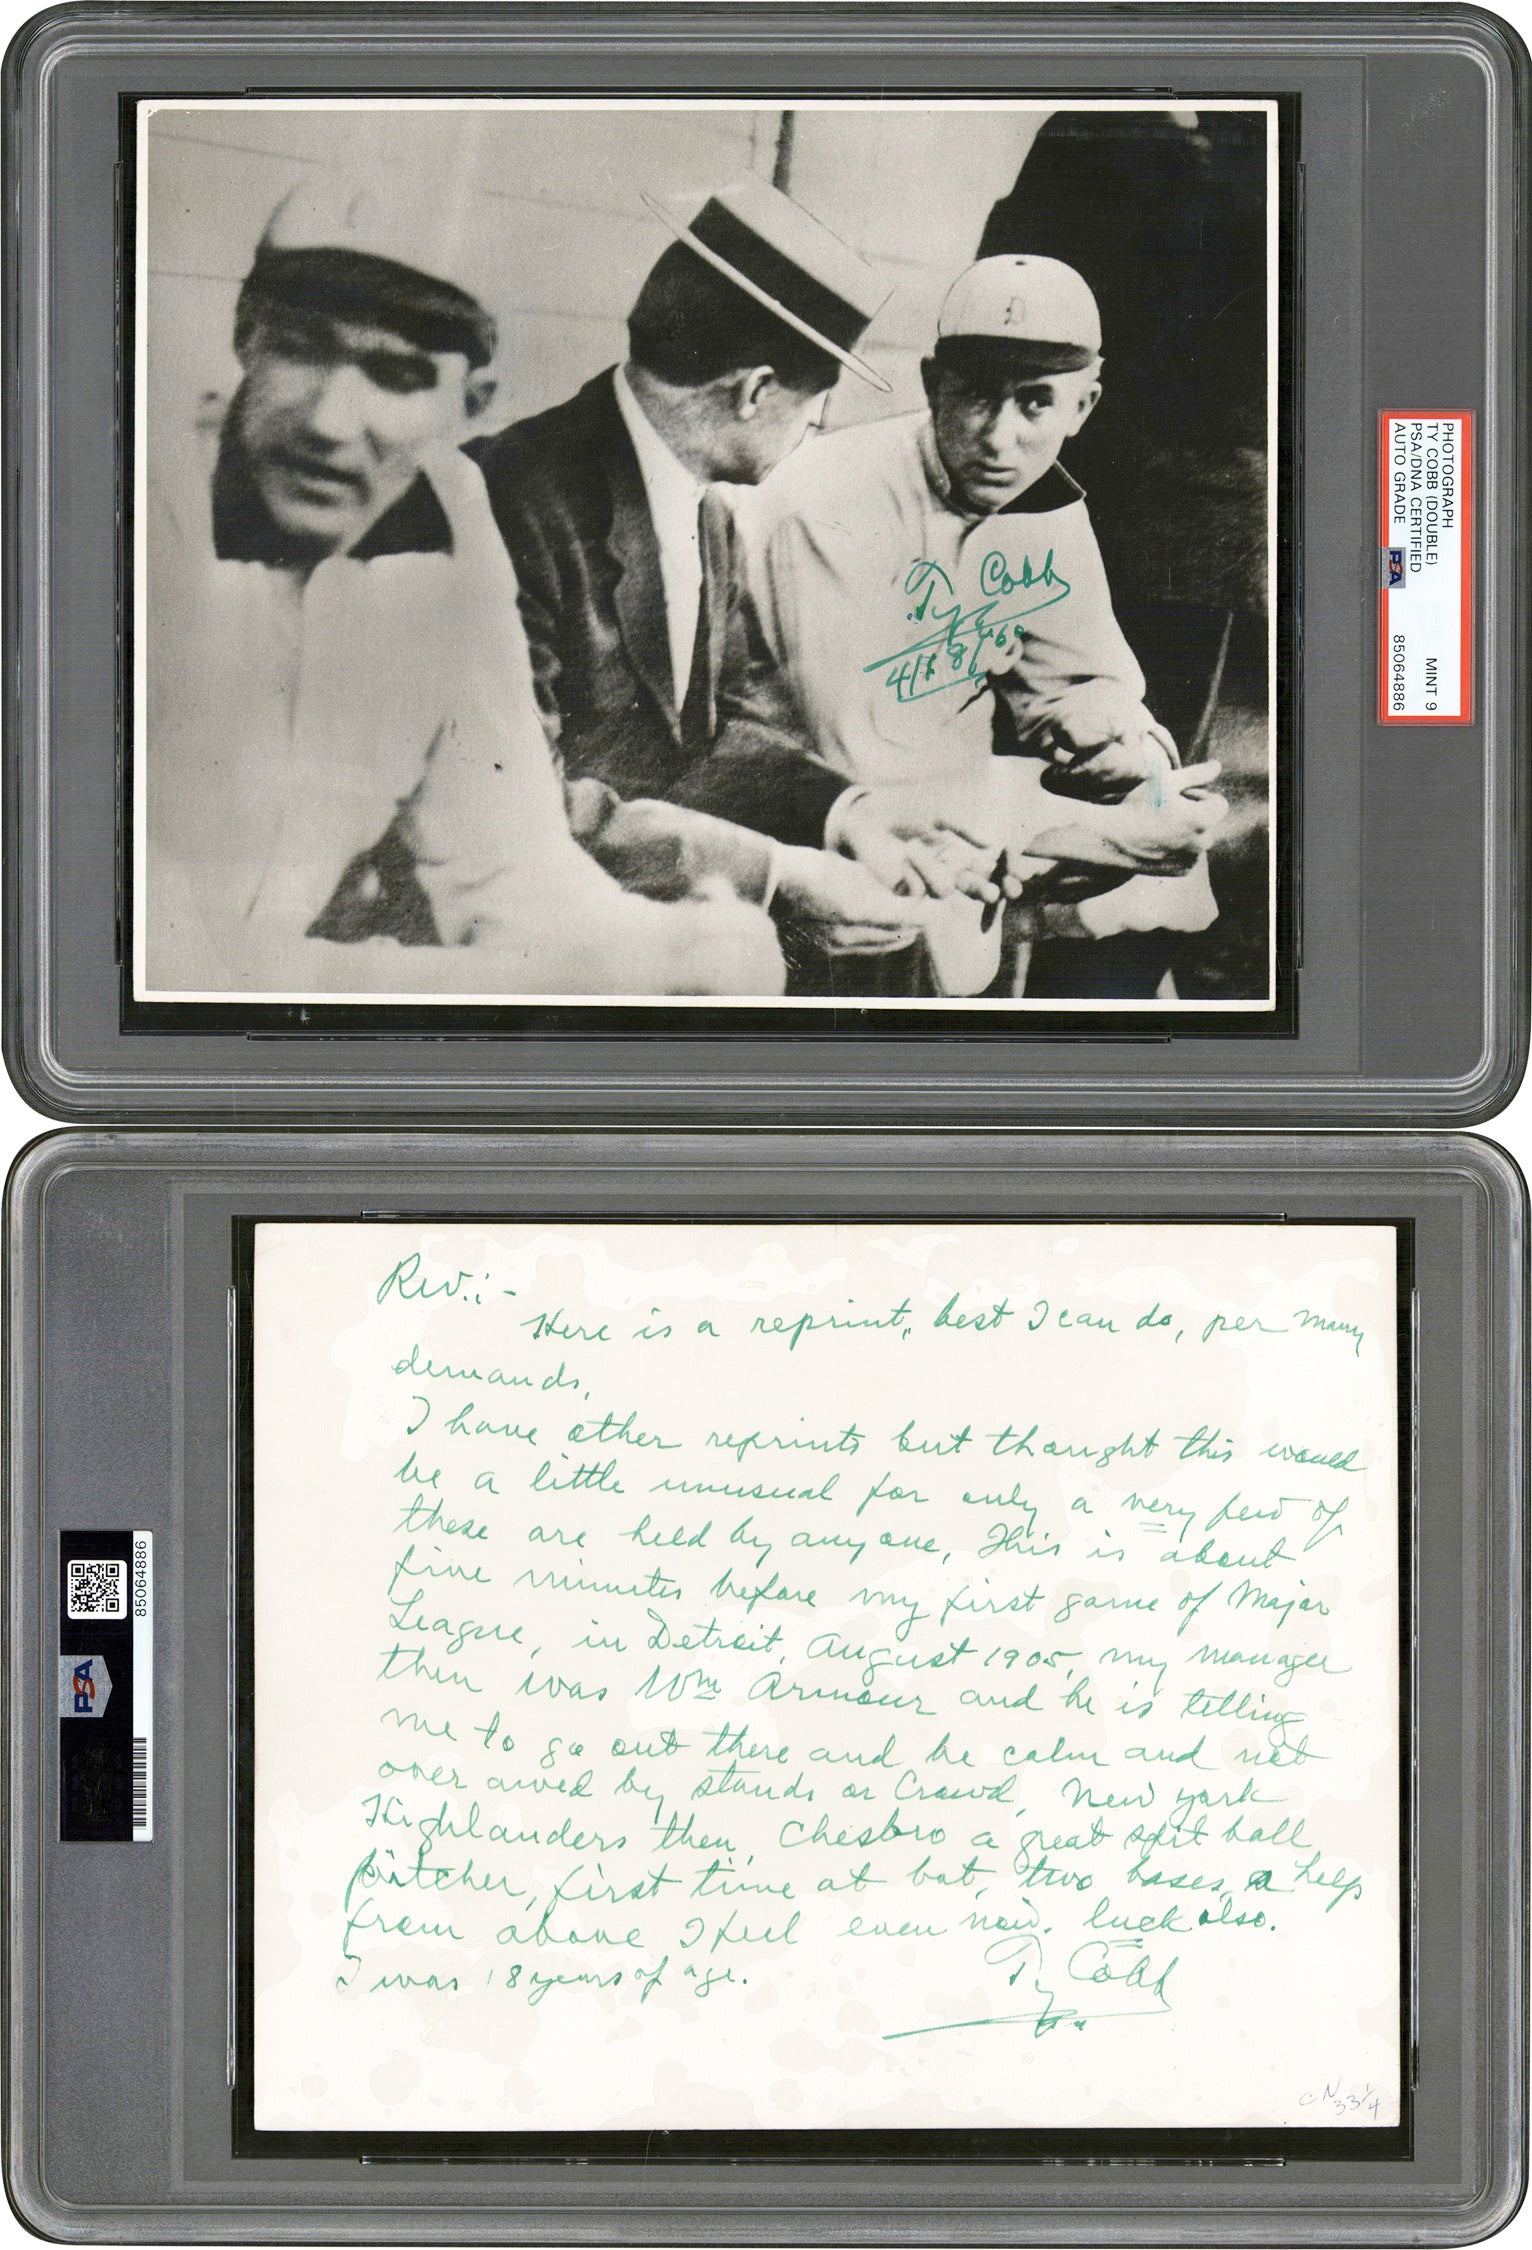 PHOTOGRAPH
TY COBB (DOUBLE)
PSA/DNA CERTIFIED MINT 9
AUTO GRADE PSA 85064886
D
Ty Cobb
4/8/60
Rev.:-
Here is a reprint, best I can do, per many
demands.
I have other reprints but thought this would
be a little unusual for only a very few of
these are held by anyone, This is about
five minutes before my first game of Major
League, in Detroit, August 1905, my manager
then was Wm Armour and he is telling
me to go out there and be calm and not
over awed by stands or Crowd, New York
Highlanders then, Chesbro a great spit ball
pitcher, first time at bat, two bases, a help
from above I feel even now. luck also.
I was 18 years of age.
Ty Cobb
CN
33 1/4
85064886
PSA